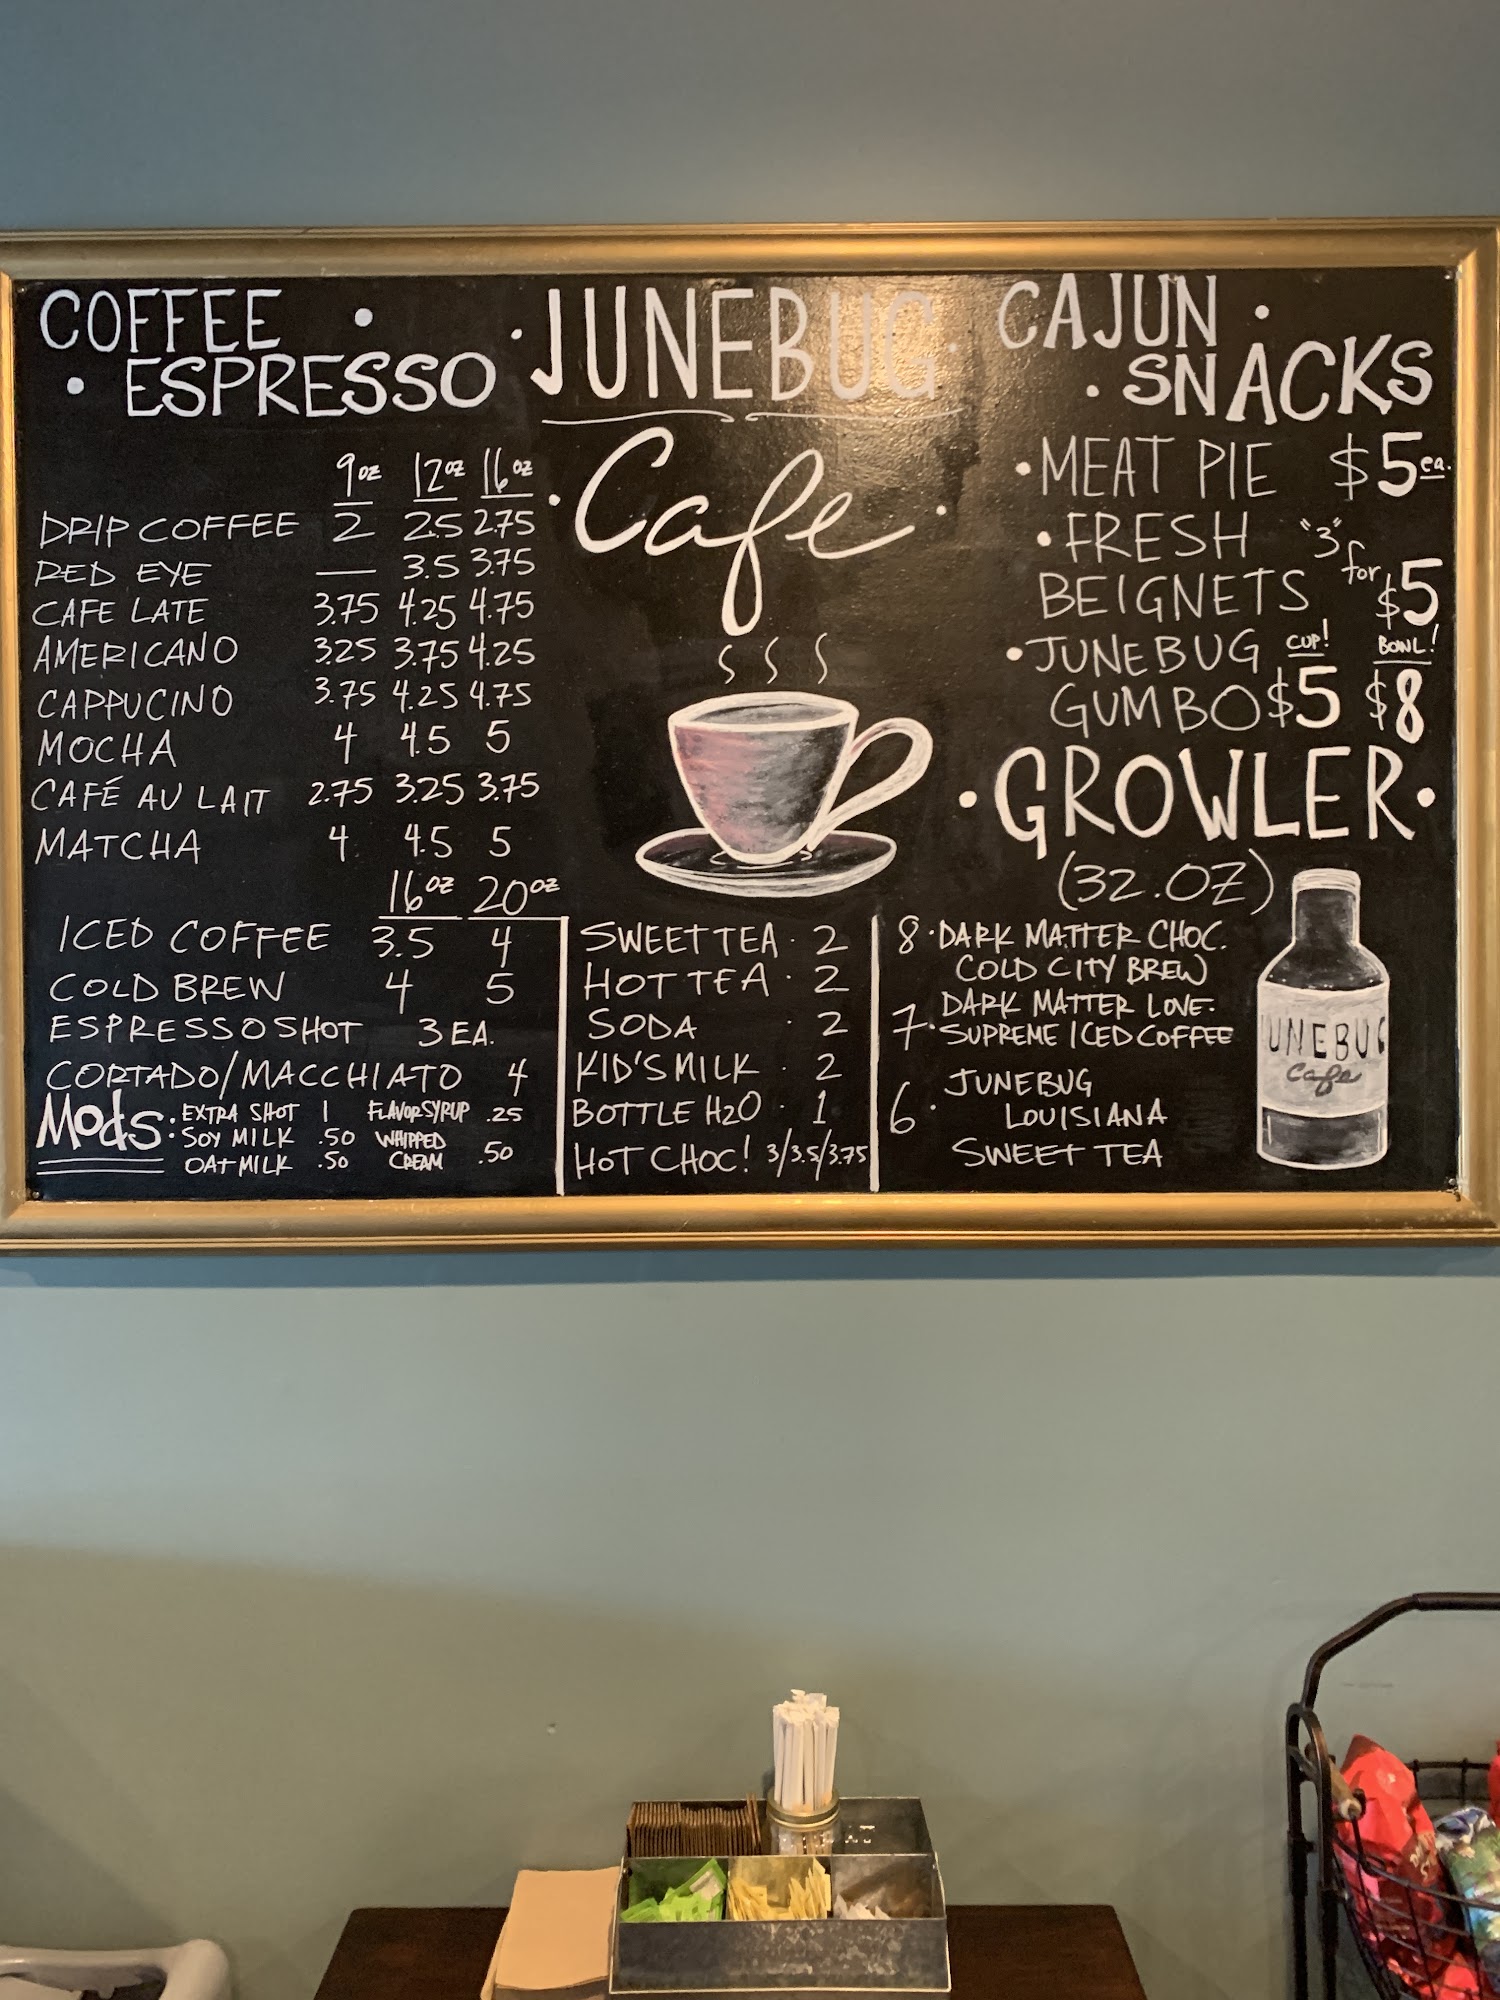 COFFEE
ESPRESSO
9oz 12oz 16oz
DRIP COFFEE 2 2.5 2.75
RED EYE — 3.5 3.75
CAFE LATE 3.75 4.25 4.75
AMERICANO 3.25 3.75 4.25
CAPPUCINO 3.75 4.25 4.75
MOCHA 4 4.5 5
CAFÉ AU LAIT 2.75 3.25 3.75
MATCHA 4 4.5 5
16oz 20oz
ICED COFFEE 3.5 4
COLD BREW 4 5
ESPRESSO SHOT 3 EA.
CORTADO/MACCHIATO 4
Mods: EXTRA SHOT 1 FLAVOR SYRUP .25
SOY MILK .50 WHIPPED
OAT MILK .50 CREAM .50
·JUNEBUG·
·Cafe·
SWEET TEA · 2
HOT TEA · 2
SODA · 2
KID'S MILK · 2
BOTTLE H2O · 1
HOT CHOC! 3/3.5/3.75
CAJUN ·
· SNACKS
·MEAT PIE $5 ea.
·FRESH "3"
BEIGNETS for $5
·JUNEBUG CUP! BOWL!
GUMBO $5 $8
·GROWLER·
(32.OZ)
8·DARK MATTER CHOC.
COLD CITY BREW
DARK MATTER LOVE.
7·SUPREME ICED COFFEE
JUNEBUG
6· LOUISIANA
SWEET TEA
JUNEBUG
Cafe